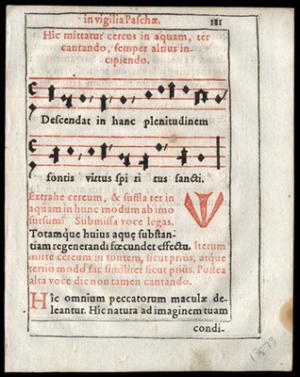 in vigilia Paschæ. 181
Hic mittatur cereus in aquam, ter
cantando, semper altius in-
cipiendo.
Descendat in hanc plenitudinem
fontis virtus spi ri tus sancti.
Extrahe cereum, & suffla ter in
aquam in hunc modum ab imo
sursum. Submissa voce legas.
Totamque huius aquę substan-
tiam regenerandi fœcundet effectu. Iterum
mitte cereum in fontem, sicut prius, atque
tertio modo fac similiter sicut prius. Postea
alta voce dic non tamen cantando.
Hic omnium peccatorum maculæ de-
leantur. Hic natura ad imaginem tuam
condi-